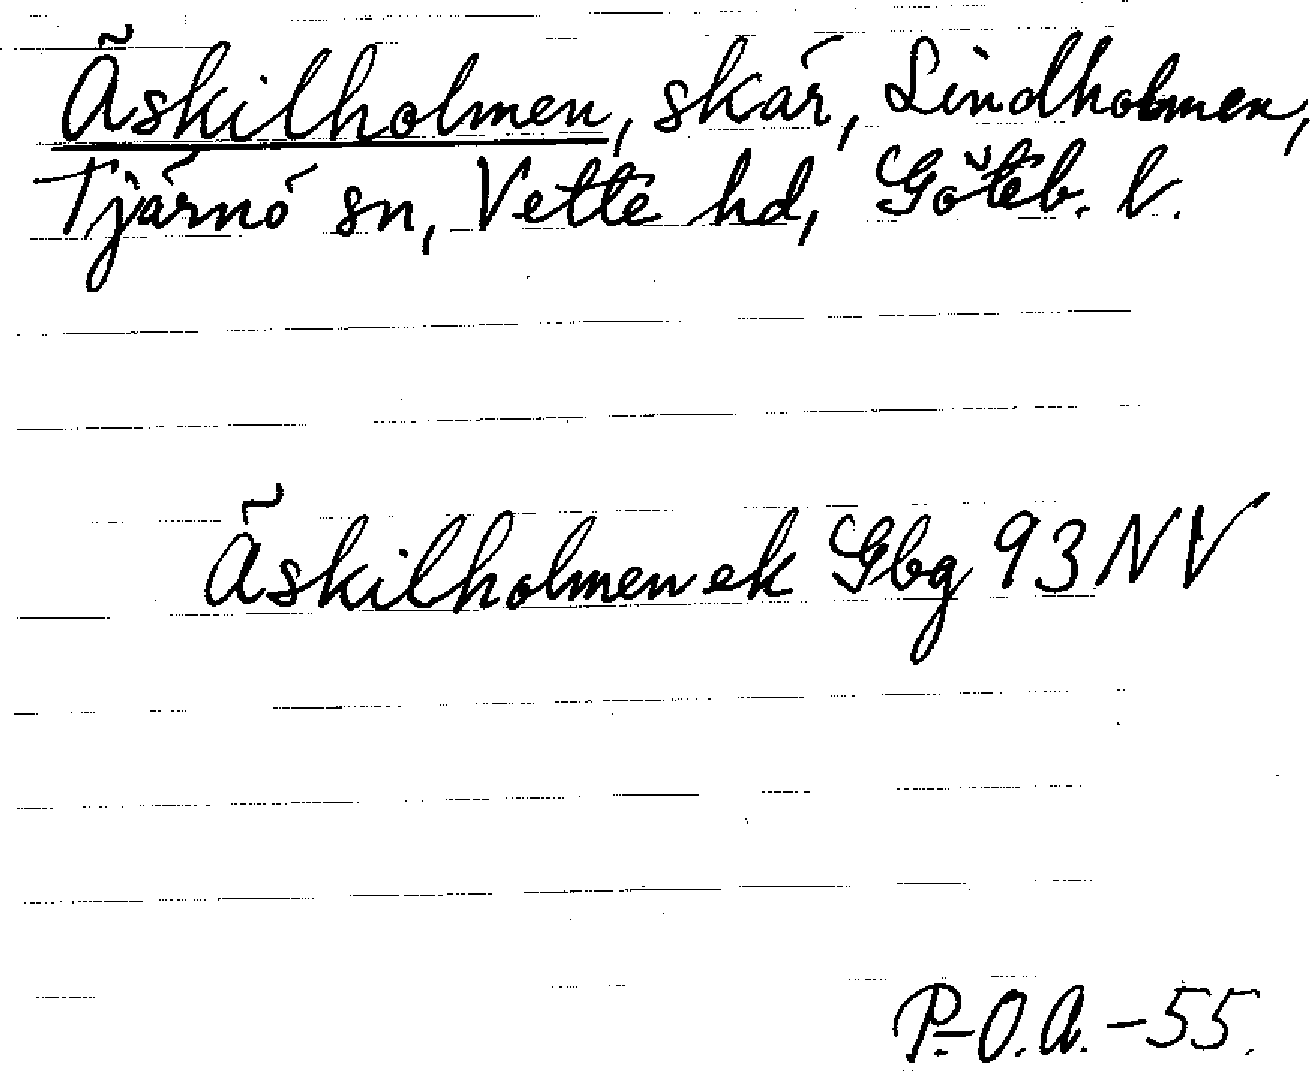 Äskilholmen, skär, Lindholmen,
Tjärnö sn, Vette hd, Göteb. l.
Äskilholmen ek Gbg 93 NV
P.-O.A. -55.